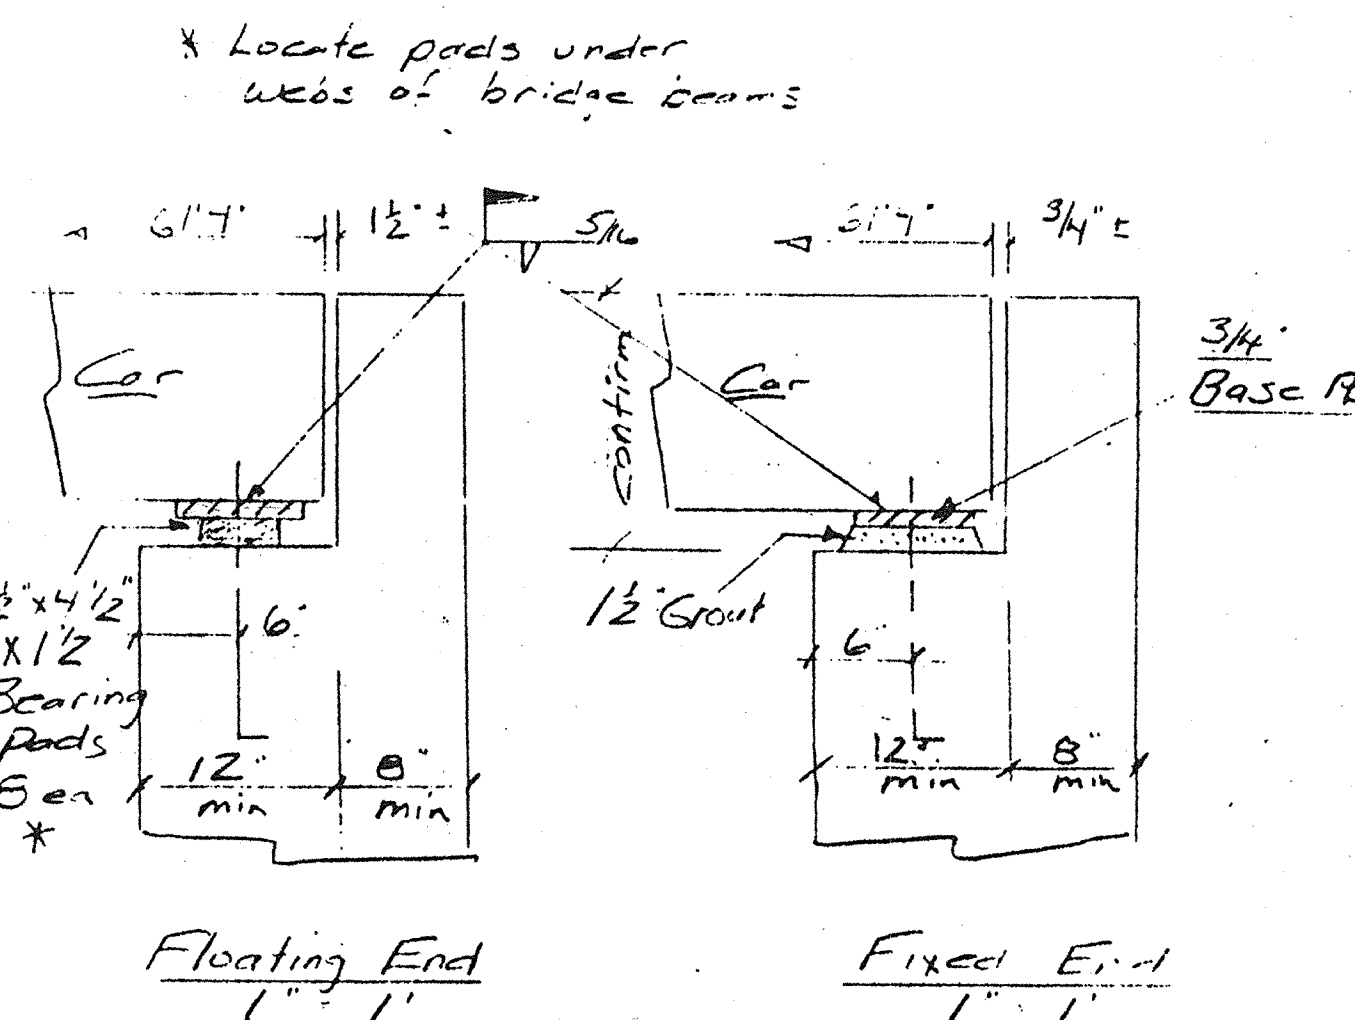 * Locate pads under
webs of bridge beams
61'7" 1 1/2" ±
5/16
61'7" 3/4" ±
Car
confirm
Car
3/4"
Base PL
1/2" x 4 1/2"
x 1 1/2
Bearing
Pads
8 ea
*
6"
12"
min
8"
min
1 1/2" Grout
6"
12"
min
8"
min
Floating End
1" = 1'
Fixed End
1" = 1'